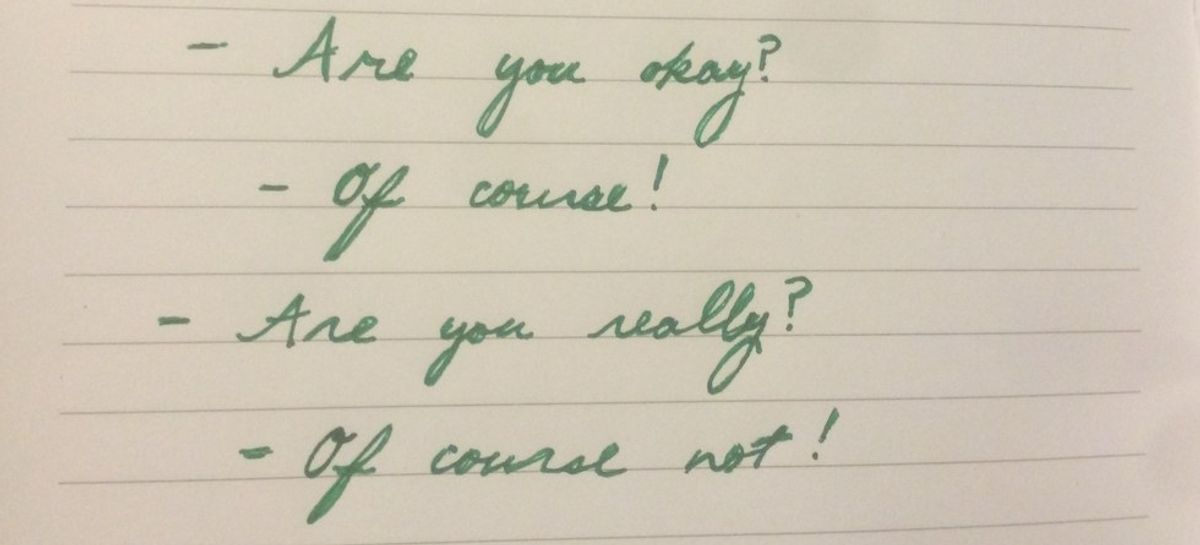 - Are you okay?
- Of course!
- Are you really?
- Of course not!